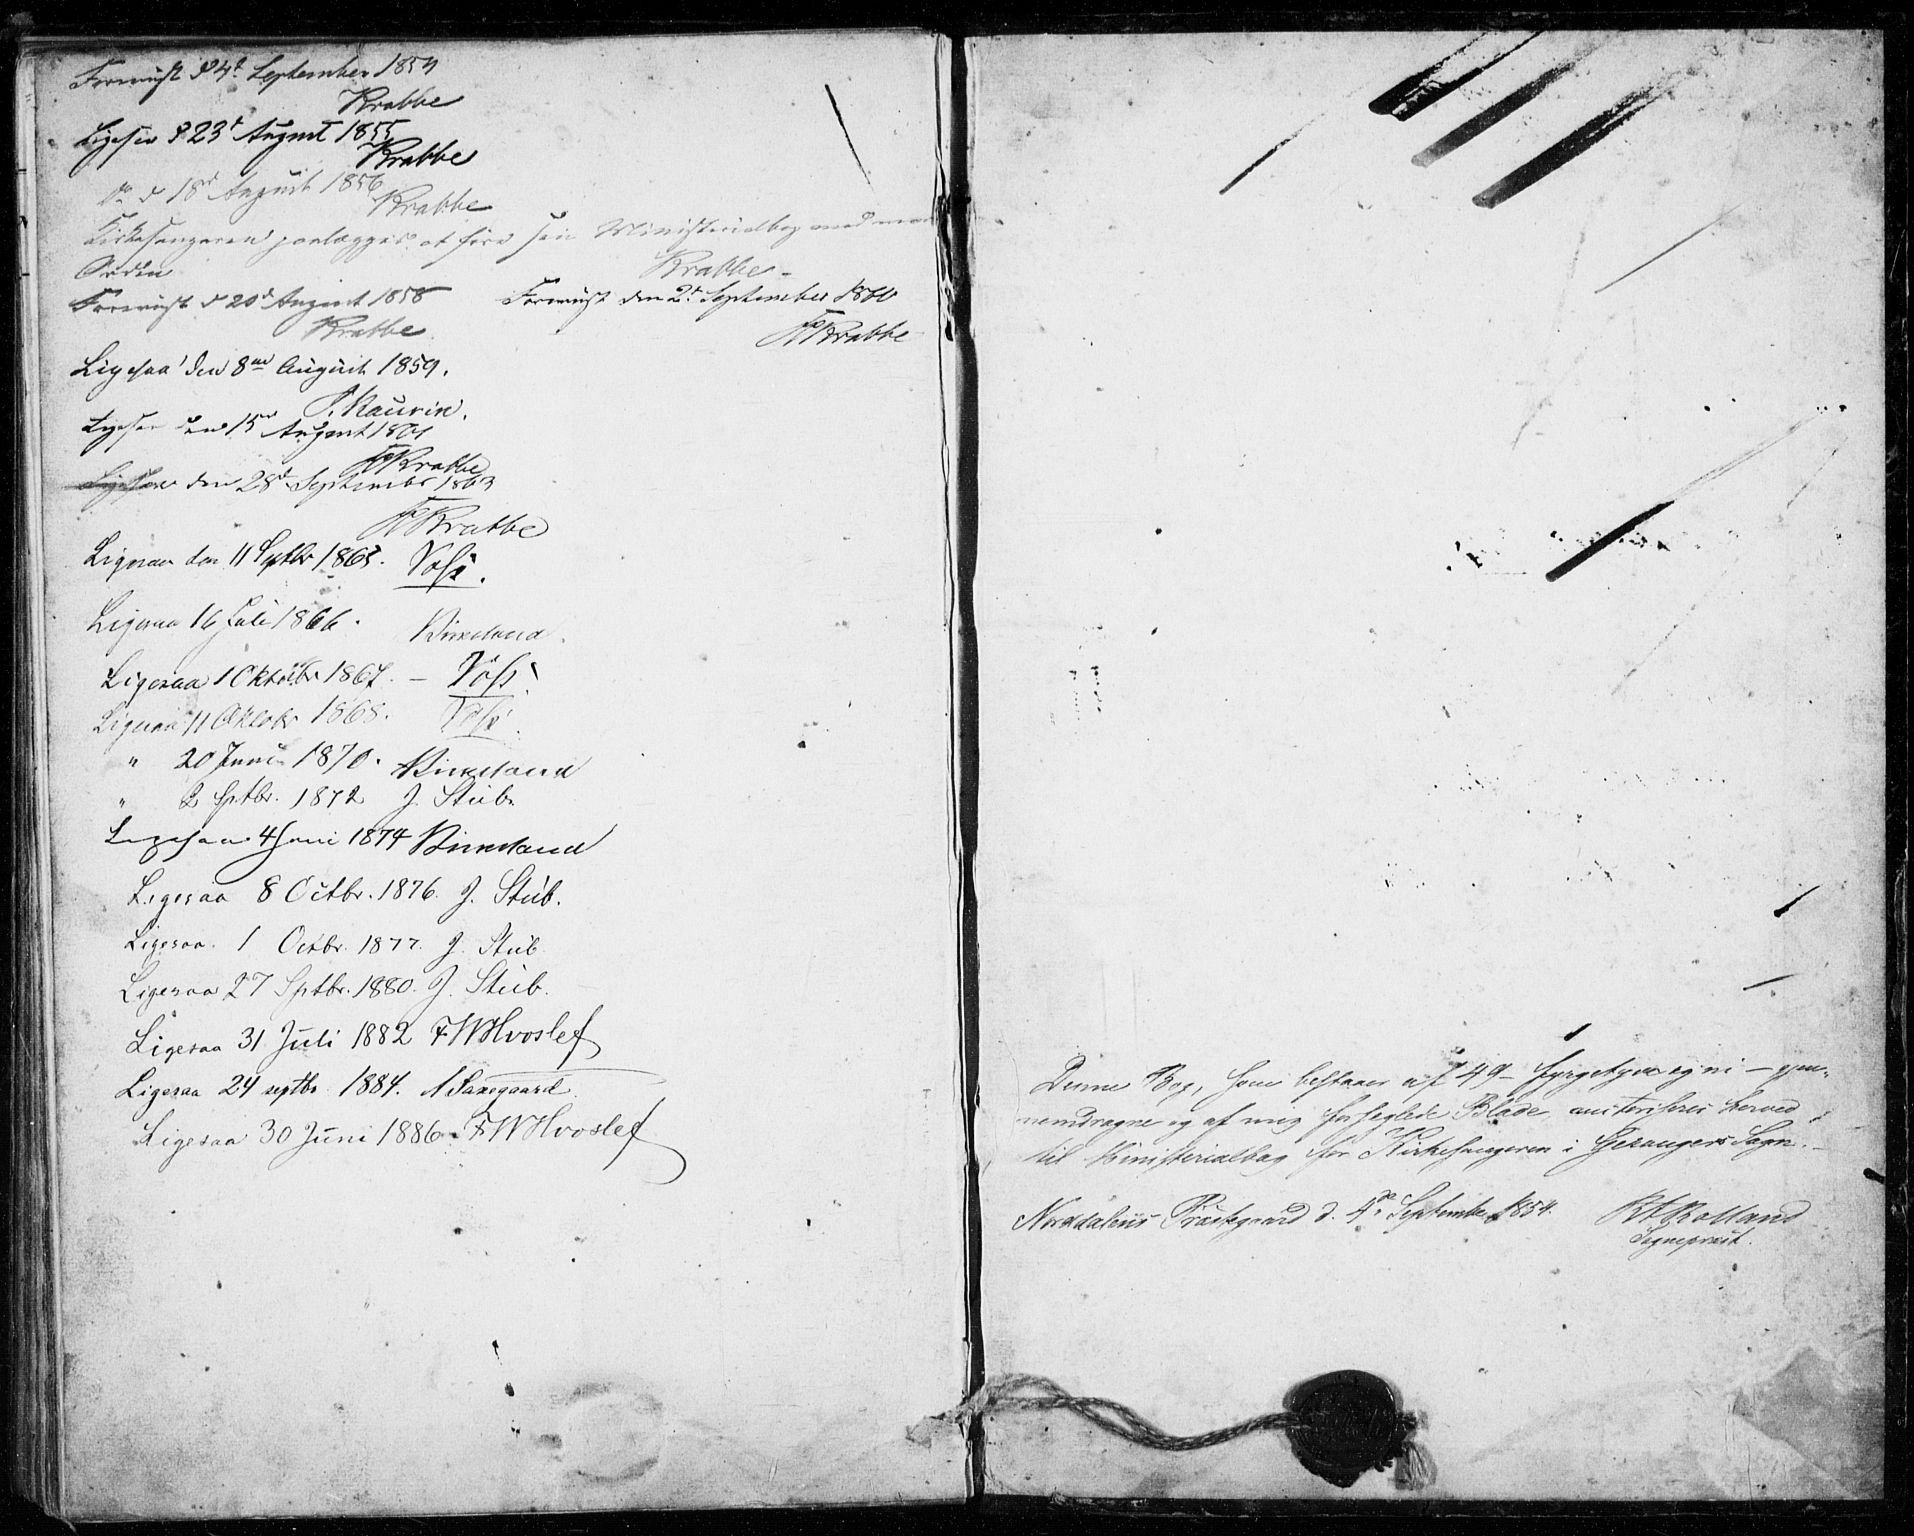 Foreviist d 4d September 1854
Krabbe
Ligesaa d 23d August 1855
Krabbe
do d 18d August 1856
Krabbe
Kirkesangeren paalægges at føre sin Ministerialbog med mere
Orden
Krabbe
Foreviist d 20d August 1858
Krabbe
Foreviist den 2d September 1860
Krabbe
Ligesaa den 8de August 1859.
P. Maurin.
Ligesaa den 15de August 1861
Krabbe
Ligesaa den 28d September 1863
Krabbe
Ligesaa den 11 Septbr 1865. Voss.
Ligesaa 16 Juli 1866. Birkeland.
Ligesaa 1 Oktober 1867. – Voss.
Ligesaa 11 Oktobr 1868. Voss.
" 20 Juni 1870. Birkeland
" 2 Sptbr. 1872 J. Stub.
Ligesaa 4 Juni 1874 Birkeland
Ligesaa 8 Octbr. 1876. J. Stub.
Ligesaa. 1 Octbr. 1877. J. Stub
Ligesaa 27 Sptbr. 1880. J. Stub.
Ligesaa 31 Juli 1882 FWHvoslef
Ligesaa 24 septbr. 1884. Saxegaard.
Ligesaa 30 Juni 1886. FWHvoslef
Denne Bog, som bestaaer af 49 – fyrgetyve og ni – gjen-
nemdragne og af mig forseglede Blade, autoriseres herved
til Ministerialbog for Kirkesangeren i Geirangers Sogn. –
Norddalens Præstegaard d. 4de September 1854.
Rolland
Sognepræst.